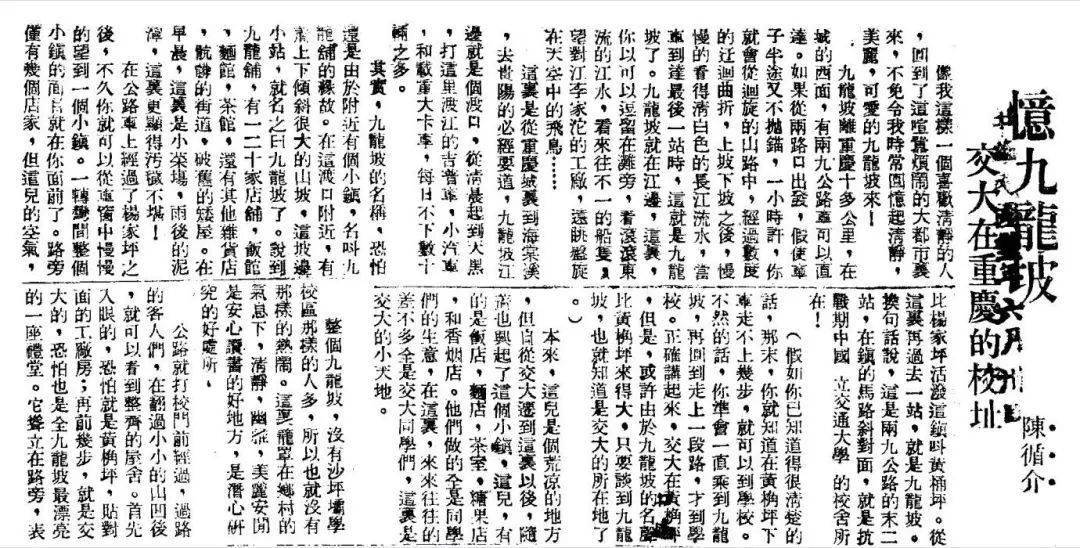 憶九龍坡
交大在重慶的校址
陳循介
像我這樣一個喜歡清靜的人
，回到了這喧囂煩鬧的大都市裏
來，不免令我時常回憶起清靜，
美麗，可愛的九龍坡來！
九龍坡離重慶十多公里，在
城的西面，有兩九公路車可以直
達。如果從兩路口出發，假使車
子半途又不拋錨，一小時許，你
就會從迴旋的山路中，經過數度
的迂迴曲折，上坡下坡之後，慢
慢的看得清白色的長江流水，當
車到達最後一站時，這就是九龍
坡了。九龍坡就在江邊，這裏，
你以可以逗留在灘旁，看滾滾東
流的江水，看來往不一的船隻，
望對江李家沱的工廠，遠眺盤旋
在天空中的飛鳥……
這裏是從重慶城裏到海棠溪
，去貴陽的必經要道，九龍坡江
邊就是個渡口，從清晨起到天黑
，打這里渡江的吉普車，小汽車
，和載重大卡車，每日不下數十
輛之多。
其實，九龍坡的名稱，恐怕
還是由於附近有個小鎮，名叫九
龍舖的緣故。在這渡口附近，有
上下傾斜很大的山坡，這坡邊
小站，就名之曰九龍坡了。說到
九龍舖，有一二十家店舖，飯館
，麵館，茶館，還有其他雜貨店
，骯髒的街道，破舊的矮屋。在
早晨，這裏是小菜場，雨後的泥
濘，這裏更顯得污穢不堪！
在公路車上經過了楊家坪之
後，不久你就可以從車窗中慢慢
的望到一個小鎮。一轉彎間整個
小鎮的面目就在你面前了。路旁
僅有幾個店家，但這兒的空氣，
比楊家坪活潑這鎮叫黃桷坪。從
這裏再過去一站，就是九龍坡。
換句話說，這是兩九公路的末二
站，在鎮的馬路斜對面，就是抗
戰期中國立交通大學的校舍所
在！
（假如你已知道得很清楚的
話，那末，你就知道在黃桷坪下
車走不上幾步，就可以到學校。
不然的話，你準會一直乘到九龍
坡，再回到走上一段路，才到學
校。正確講起來，交大在黃桷坪
，但是，或許由於九龍坡的名聲
比黃桷坪來得大，只要談到九龍
坡，也就知道是交大的所在地了
。）
本來，這兒是個荒凉的地方
，但自從交大遷到這裏以後，隨
着也興起了這個小鎮，這兒，有
的是飯店，麵店，茶室，糖果店
，和香烟店。他們做的全是同學
們的生意，在這裏，來來往往的
差不多全是交大同學們，這裏是
交大的小天地。
整個九龍坡，沒有沙坪壩學
校區那樣的人多，所以也就沒有
那樣的熱鬧。這裏籠罩在鄉村的
氣息下，清靜，幽雅，美麗安閒
是安心讀書的好地方，是潛心研
究的好處所。
公路就打校門前經過，過路
的客人們，在翻過小小的山凹後
，就可以看到整齊的屋舍。首先
入眼的，恐怕就是黃桷坪，貼對
面的工廠房；再前幾步，就是交
大的，恐怕也是全九龍坡最漂亮
的一座禮堂。它聳立在路旁，表